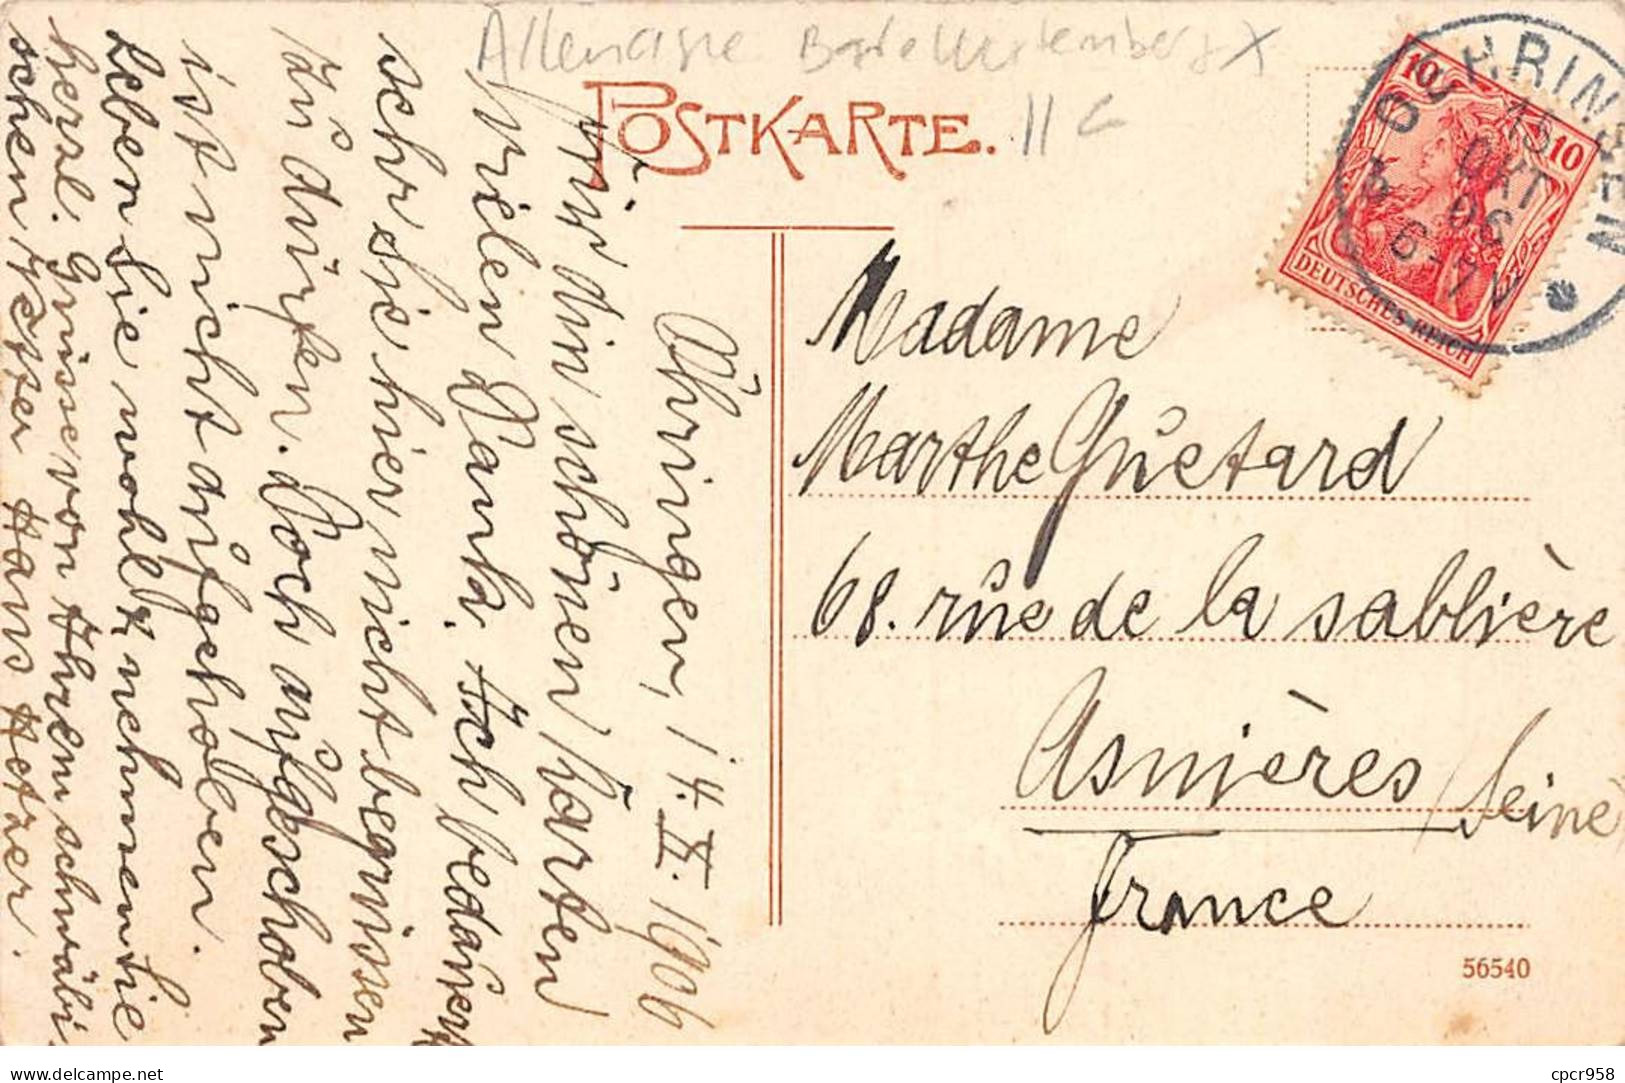 Allemagne
POSTKARTE.
11 C
OEHRINGEN
15
OKT
06
6-7 N
10
10
DEUTSCHES REICH
Öhringen, 14. X. 1906
Für die schönen Karten
vielen Dank. Ich bedauere
sehr sie hier nicht begrüssen
zu dürfen. Doch aufgeschoben
ist nicht aufgehoben.
Leben Sie wohl & nehmen Sie
herzl. Grüsse von Ihrem schwäbi-
schen Vetter Hans Hetzer.
Madame
Marthe Guétard
68. rue de la sablière
Asnières (Seine)
France
56540
cpcr958